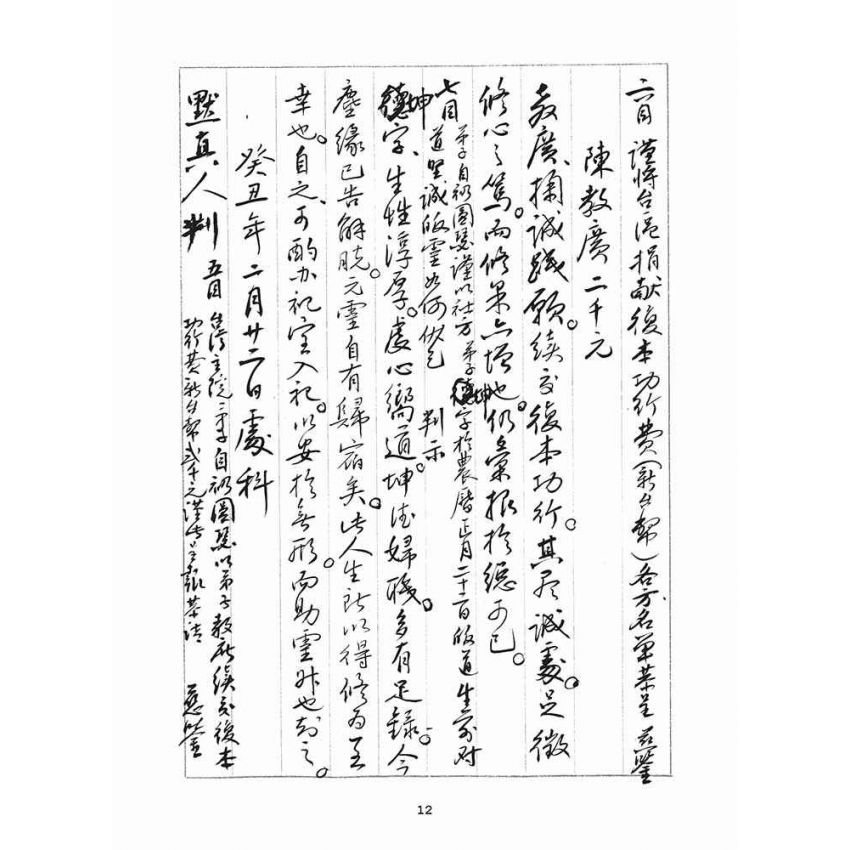 六目 謹將台港捐献復本功行費(新台幣)各方名單恭呈 慈鑒
陳教廣 二千元
教廣、掬誠踐願。續交復本功行。其尽誠處。足徵
修心之篤。而修果亦增也。仍彙報於總可已。
七目 弟子自初圓慧謹以社方弟子德坤字於農曆正月二十二日皈道生前对
道堅誠皈靈如何伏乞 判示
德坤字、生性淳厚。虔心嚮道。坤德婦職。多有足錄。今
塵緣已告解脫。元靈自有歸宿矣。此人生所以得修為至
幸也。自之、可酌办祀室入祀。以安於無形。而助靈升也判之。
癸丑年二月廿二日處科
默真人判 五目 台灣主院 弟子自初圓慧以弟子教 續交復本
功行費新台幣弍千元謹此呈報恭請 慈鑒
12